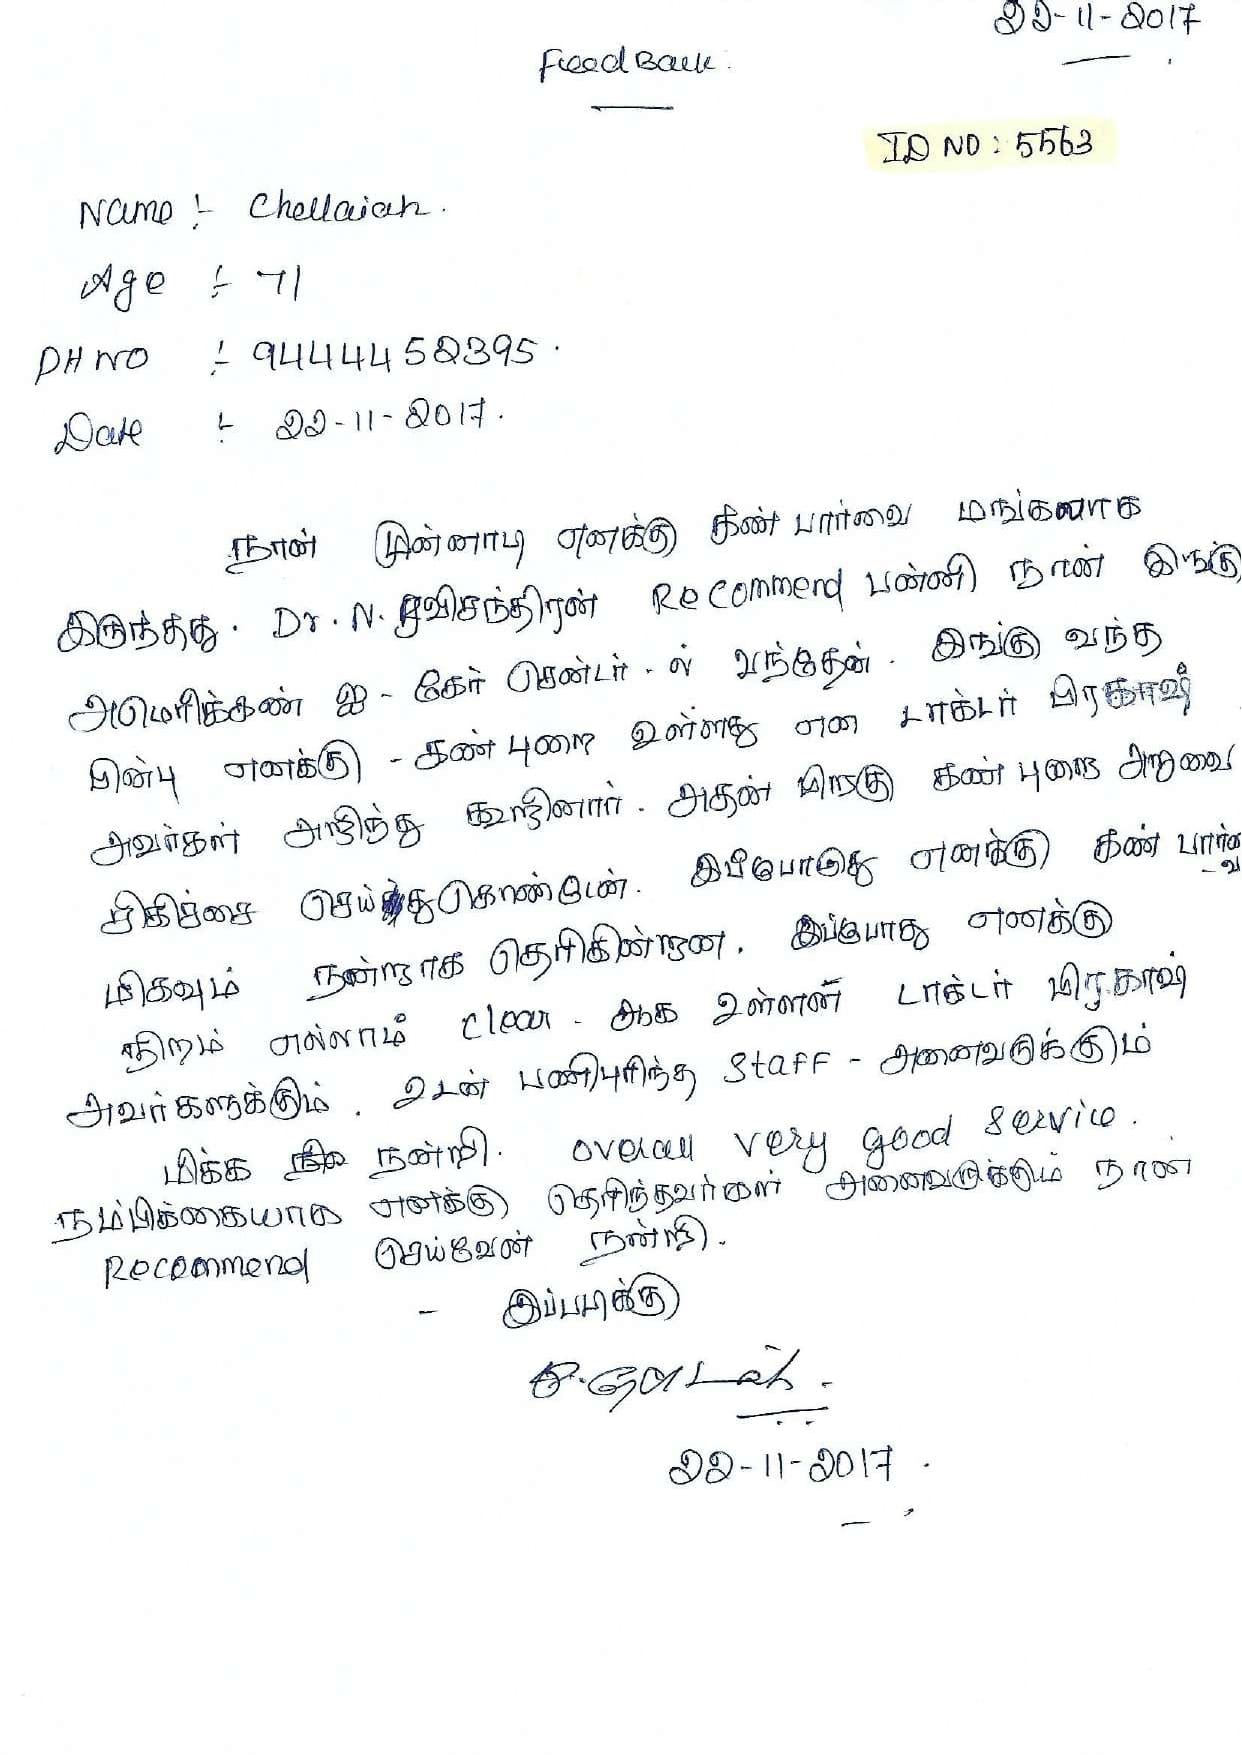 22-11-2017
Feed Back.
ID NO : 5563
Name :- Chellaiah.
Age :- 71
PH NO :- 9444452395.
Date :- 22-11-2017.
நான் முன்னாடி எனக்கு கண் பார்வை மங்கலாக
இருந்தது. Dr. N. ரவிசந்திரன் Recommend பண்ணி நான் இங்கு
அமெரிக்கண் ஐ - கேர் சென்டர் - ல் வந்தேன். இங்கு வந்த
பின்பு எனக்கு - கண் புறை உள்ளது என டாக்டர் பிரகாஷ்
அவர்கள் அறிந்து கூறினார். அதன் பிறகு கண் புறை அறுவை
சிகிச்சை செய்துகொண்டேன். இப்போது எனக்கு கண் பார்வை
மிகவும் நன்றாக தெரிகின்றன. இப்போது எனக்கு
நிறம் எல்லாம் clear - ஆக உள்ளன் டாக்டர் பிரகாஷ்
அவர்களுக்கும். உடன் பணிபுரிந்த Staff - அனைவருக்கும்
மிக்க நன்றி. overall very good service.
நம்பிக்கையாக எனக்கு தெரிந்தவர்கள் அனைவருக்கும் நான்
Recommend செய்வேன் நன்றி.
- இப்படிக்கு
22-11-2017.